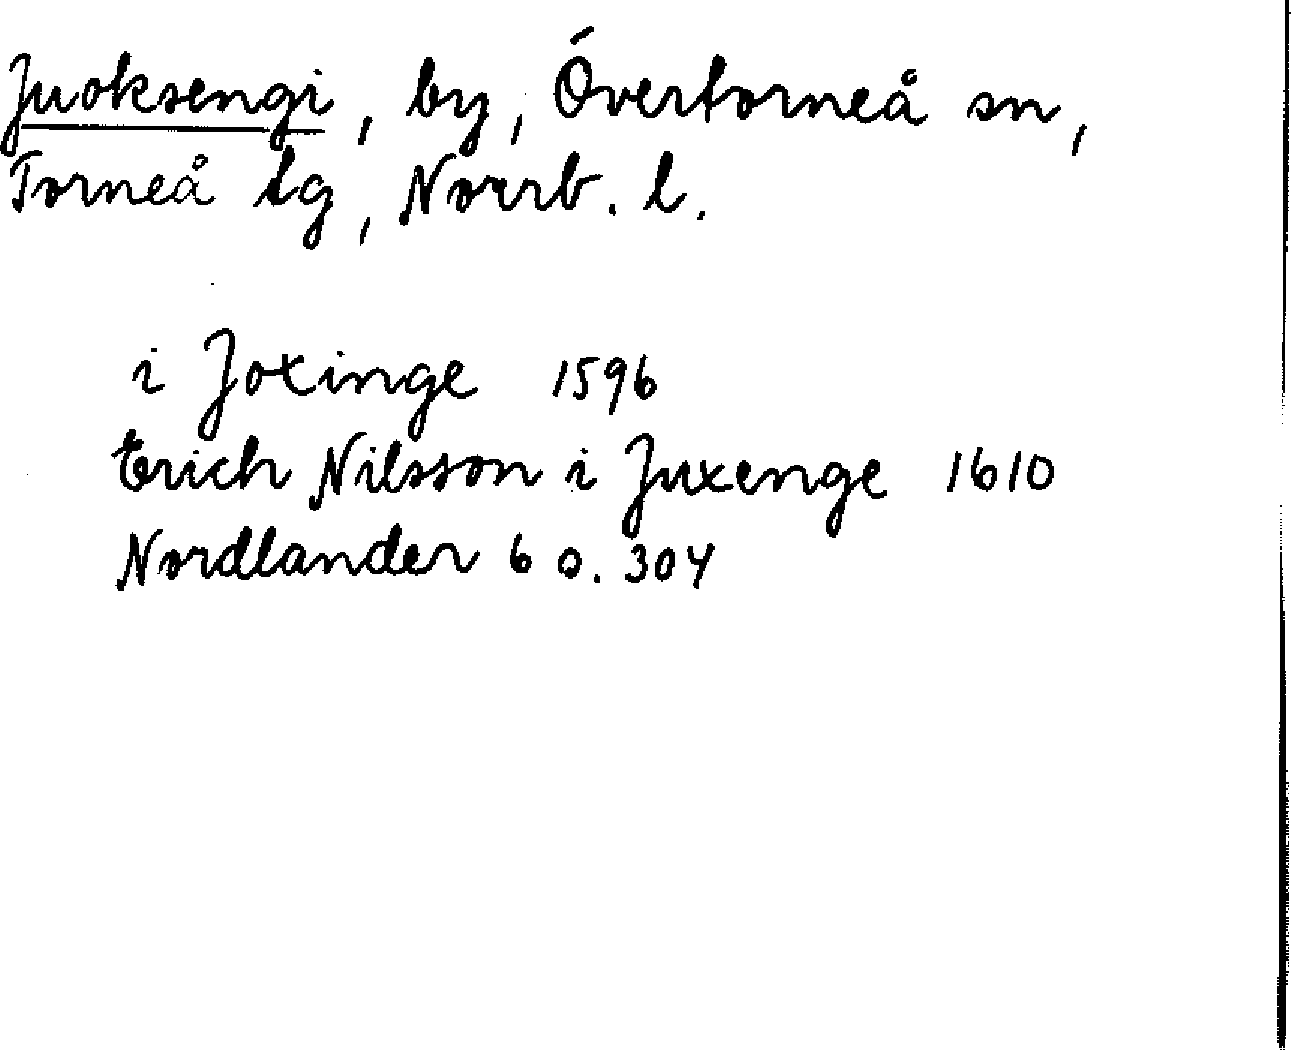 Juoksengi, by, Övertorneå sn,
Torneå tg, Norrb. l.
i Joxinge 1596
Erich Nilsson i Juxenge 1610
Nordlander 6 s. 304